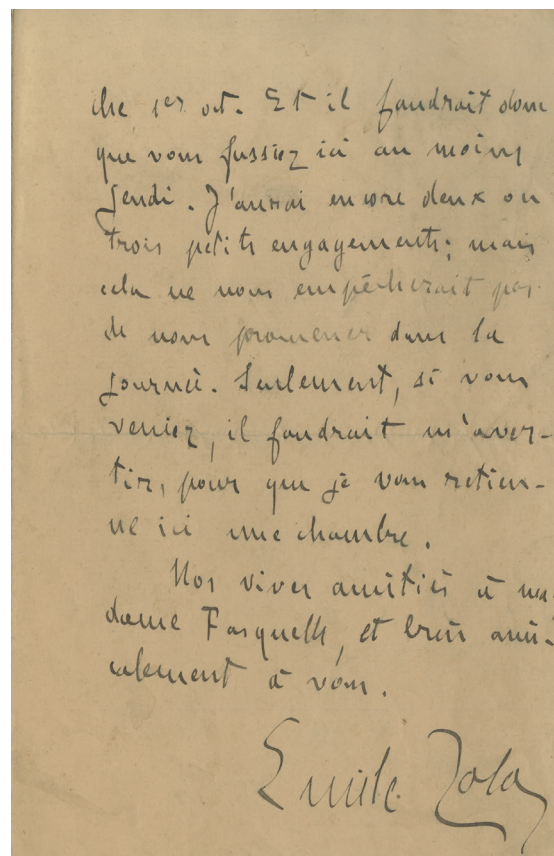 che 1er oct. Et il faudrait donc
que vous fussiez ici au moins
jeudi. J'aurai encore deux ou
trois petits engagements; mais
cela ne nous empêcherait pas
de nous promener dans la
journée. Seulement, si vous
veniez, il faudrait m'aver-
tir, pour que je vous retien-
ne ici une chambre.
Nos vives amitiés à ma-
dame Fasquelle, et bien ami-
calement à vous.
Emile Zola